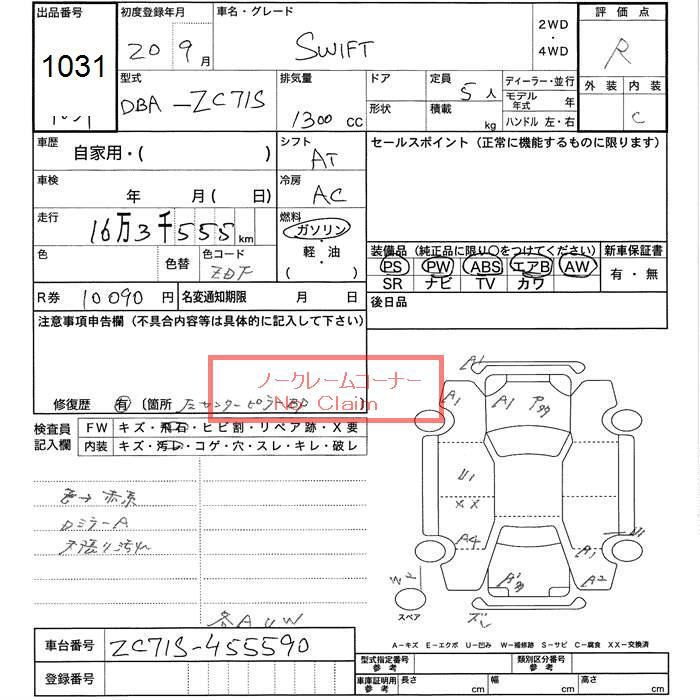 出品番号 初度登録年月 車名・グレード 2WD・4WD 評価点
1031 20 9月 SWIFT R
型式 排気量 ドア 定員 ディーラー・並行 外装 内装
DBA-ZC71S 1300 CC 5人 モデル年式 年 C
形状 積載 kg ハンドル 左・右
車歴 自家用・( ) シフト AT セールスポイント (正常に機能するものに限ります)
車検 年 月( 日) 冷房 AC
走行 16万3千555km 燃料 ガソリン・軽・油 ( )
色 色替 色コード ZDF
装備品 (純正品に限り○をつけてください) 新車保証書
PS PW ABS エアB AW 有・無
SR ナビ TV カワ
R券 10090円 名変通知期限 月 日 後日品
注意事項申告欄 (不具合内容等は具体的に記入して下さい)
ノークレームコーナー
No Claim
修復歴 有 〔箇所
検査員記入欄 FW キズ・飛石・ヒビ割・リペア跡・X要
内装 キズ・汚レ・コゲ・穴・スレ・キレ・破レ
A1
A1 A1
U1
XX
A4 A1 U1
A2
W2
スペア
色→赤系
ロミラーA
天張り汚れ
各AUW
車台番号 ZC71S-455590
登録番号
A-キズ E-エクボ U-凹み W-補修跡 S-サビ C-腐食 XX-交換済
型式指定番号 参考 類別区分番号 参考
車庫証明用 参考 長さ cm 幅 cm 高さ cm